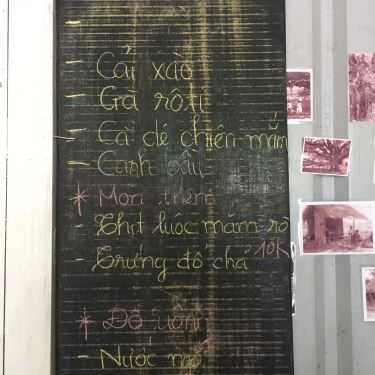 - Cải xào
- Gà rô ti
- Cá dé chiên mắm
- Canh bầu
* Món thêm
- Thịt luộc mắm rò
- Trứng đổ chả 10K
* Đồ uống
- Nước